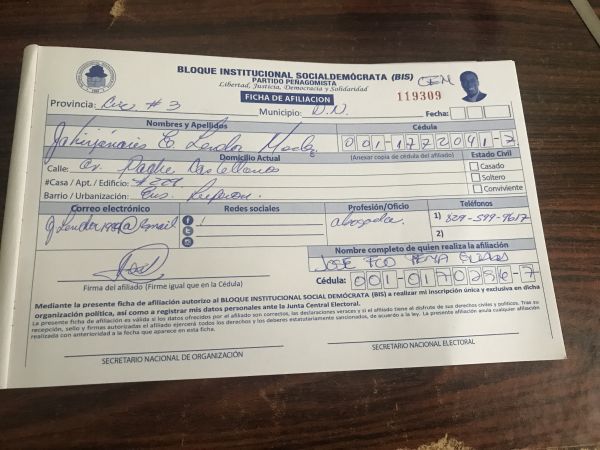 BLOQUE INSTITUCIONAL SOCIALDEMÓCRATA (BIS)
PARTIDO PEÑAGOMISTA
CEN
Libertad, Justicia, Democracia y Solidaridad
FICHA DE AFILIACION
119309
Provincia: Circ # 3 Municipio: D.N. Fecha:
Nombres y Apellidos Cédula
001-1772041-7
Domicilio Actual (Anexar copia de cédula del afiliado) Estado Civil
Calle: Av. Padre Castellanos
Casado
#Casa / Apt. / Edificio: Soltero
Barrio / Urbanización: Ens. Conviviente
Correo electrónico Redes sociales Profesión/Oficio Teléfonos
@gmail abogada 1) 829-599-9617
2)
Nombre completo de quien realiza la afiliación
JOSE FCO PEÑA
Firma del afiliado (Firme igual que en la Cédula) Cédula: 001-0170286-7
Mediante la presente ficha de afiliación autorizo al BLOQUE INSTITUCIONAL SOCIAL DEMÓCRATA (BIS) a realizar mi inscripción única y exclusiva en dicha
organización política, así como a registrar mis datos personales ante la Junta Central Electoral.
La presente ficha de afiliación es válida si los datos ofrecidos por el afiliado son correctos, las declaraciones veraces y si el afiliado tiene el disfrute de sus derechos civiles y políticos. Tras su
recepción, sello y firmas autorizadas el afiliado ejercerá todos los derechos y los deberes estatutariamente sancionados, de acuerdo a la ley. La presente afiliación anula cualquier afiliación
realizada con anterioridad a la fecha que aparece en esta ficha.
SECRETARIO NACIONAL DE ORGANIZACIÓN SECRETARIO NACIONAL ELECTORAL